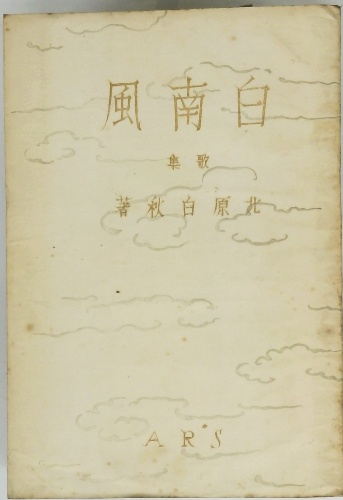 白南風
歌集
北原白秋著
ARS